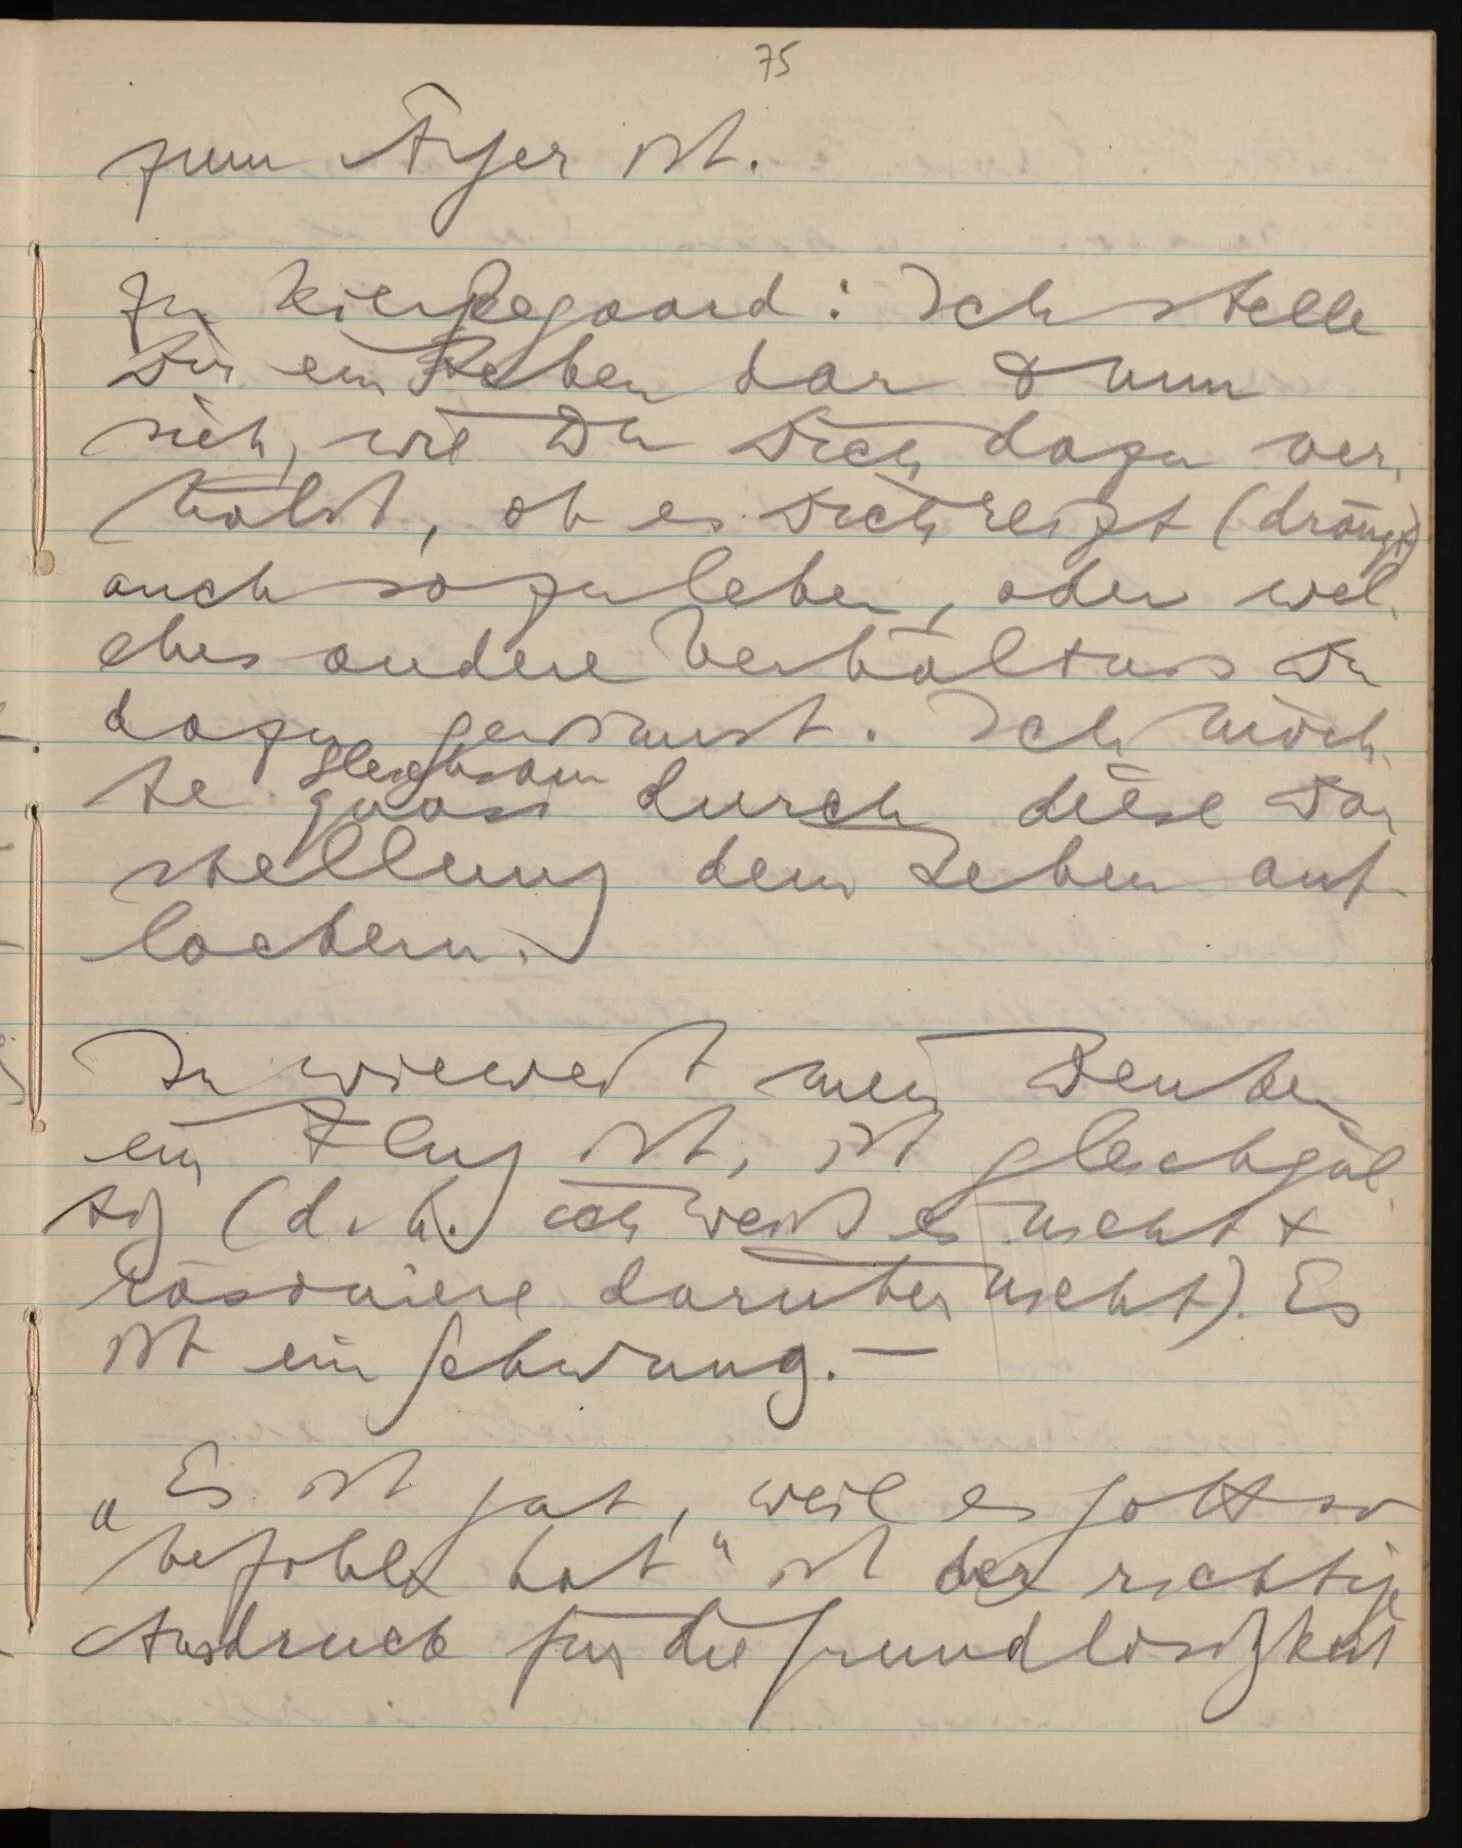 75
zum Ärger ist.
Zu Kierkegaard: Ich stelle
Dir ein Leben dar & nun
sieh, wie Du Dich dazu ver-
hälst, ob es Dich reizt (drängt)
auch so zu leben, oder wel-
ches andere Verhältnis Du
dazu gewinnst. Ich möch-
gleichsam
te quasi durch diese Dar-
stellung dein Leben auf-
lockern.
In wieweit mein Denken
ein Flug ist, ist gleichgül-
tig (d.h. ich weiß es nicht &
räsoniere darüber nicht). Es
ist ein Schwung. —
„Es ist gut, weil es Gott so
befohlen hat“ ist der richtige
Ausdruck für die Grundlosigkeit